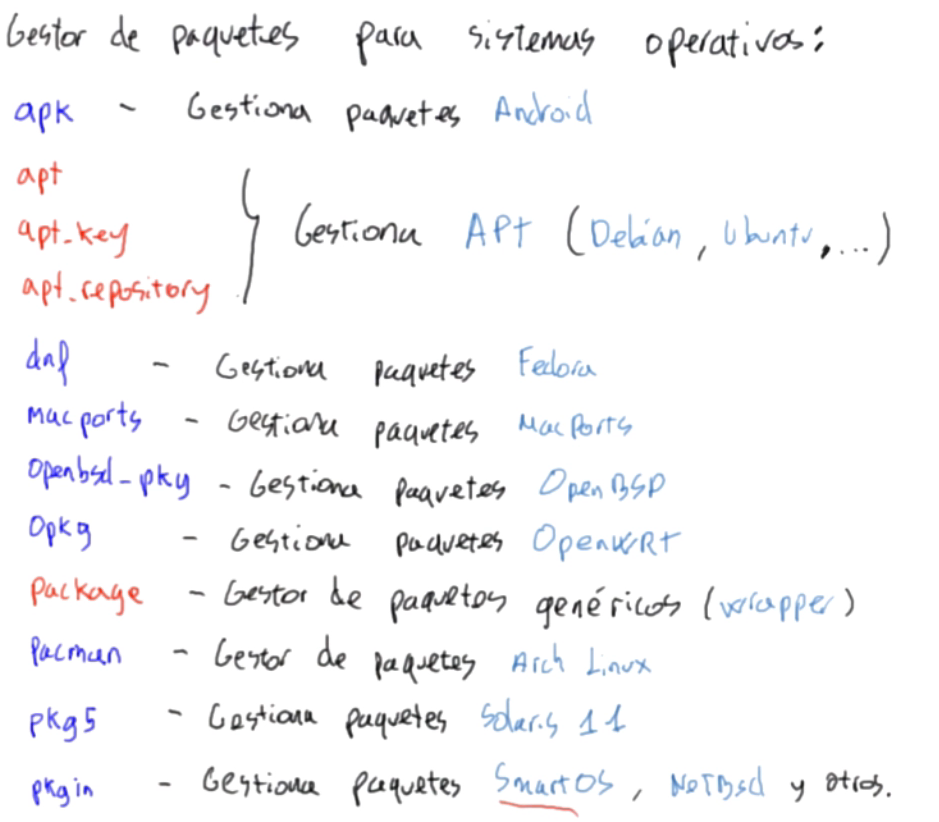 Gestor de paquetes para sistemas operativos:
apk - Gestiona paquetes Android
apt
apt_key
apt_repository
} Gestiona APt (Debian, Ubuntu,...)
dnf - Gestiona paquetes Fedora
macports - Gestiona paquetes MacPorts
Openbsd_pkg - Gestiona paquetes OpenBSD
Opkg - Gestiona paquetes OpenWRT
Package - Gestor de paquetes genéricos (wrapper)
Pacman - Gestor de paquetes Arch Linux
pkg5 - Gestiona paquetes Solaris 11
pkgin - Gestiona paquetes SmartOS, NetBsd y otros.